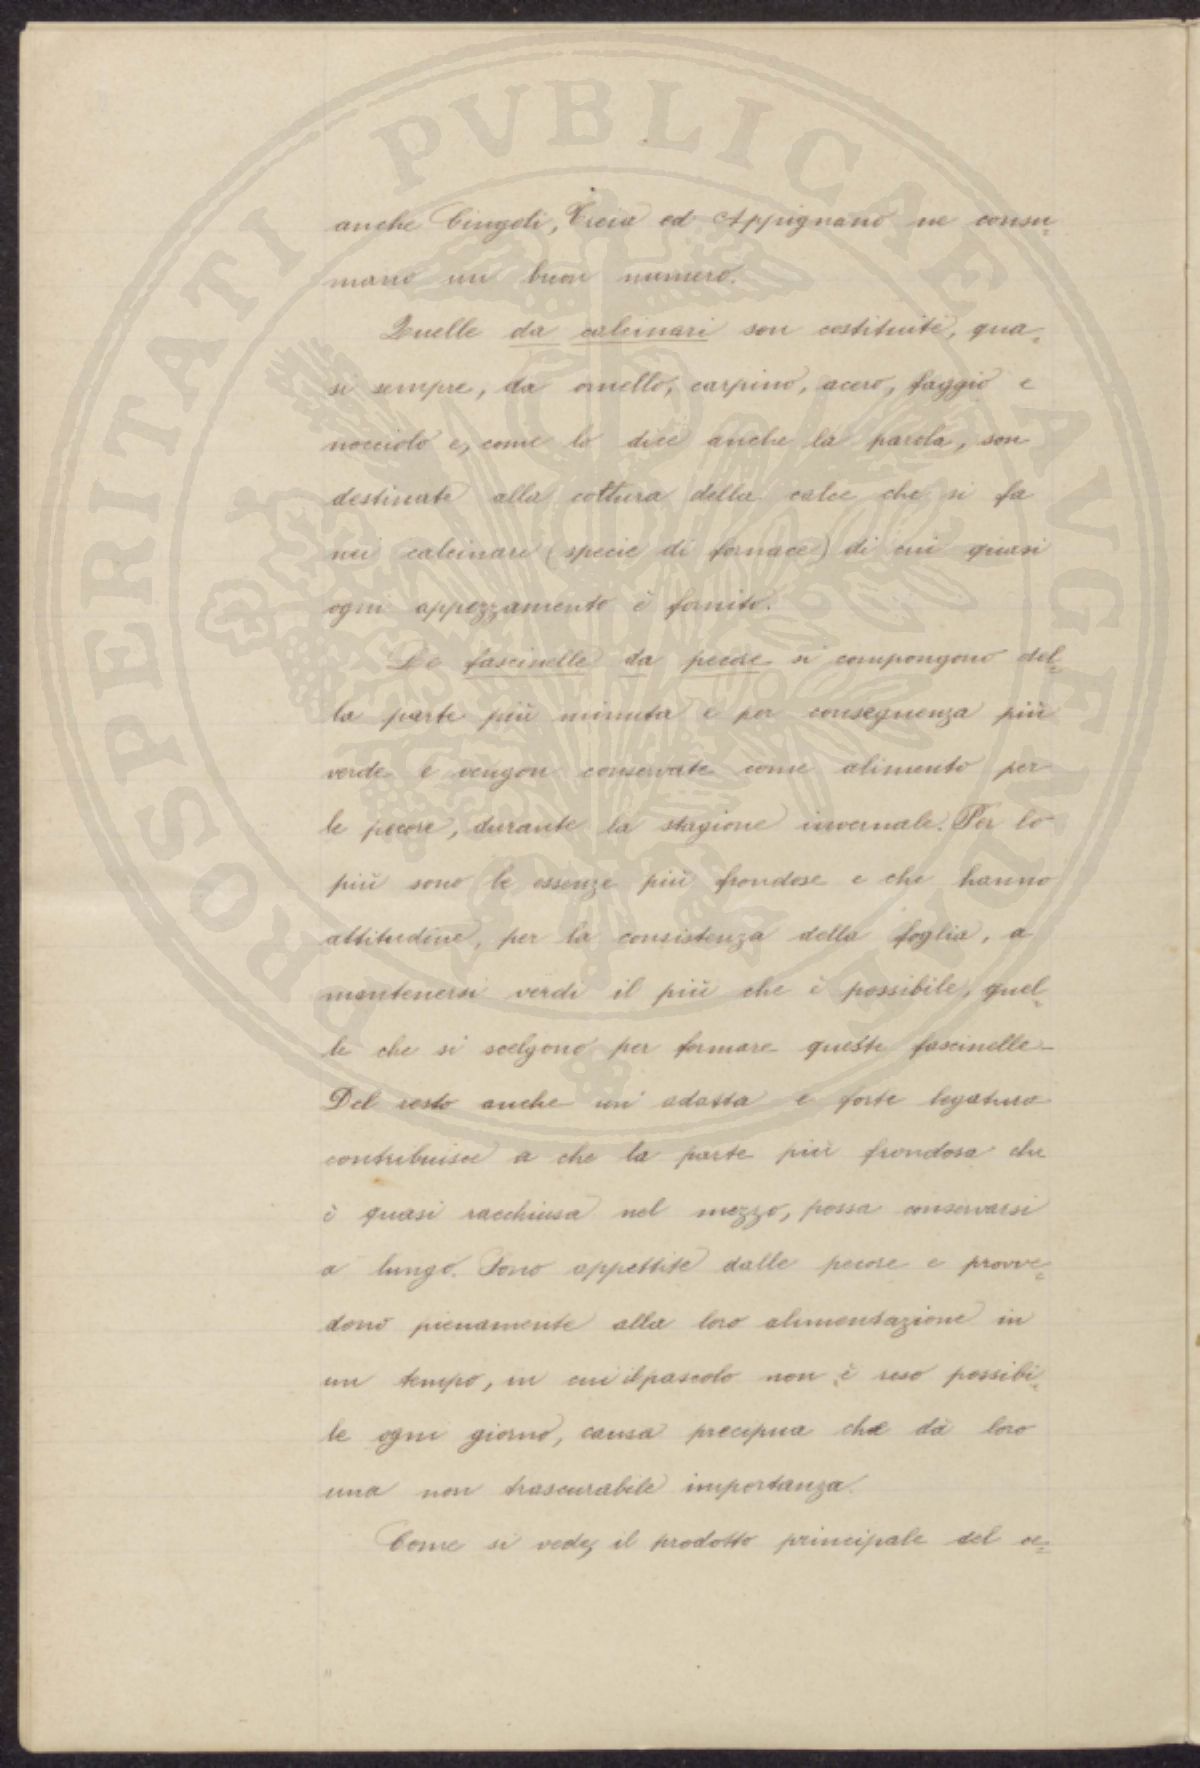 anche Cingoli, Treia ed Appignano ne consu=
mano un buon numero.
Quelle da calcinari son costituite, qua=
si sempre, da ornello, carpino, acero, faggio e
nocciolo e, come lo dice anche la parola, son
destinate alla cottura della calce che si fa
nei calcinari (specie di fornace) di cui quasi
ogni appezzamento è fornito.
Le fascinelle da pecore si compongono del=
la parte più minuta e per conseguenza più
verde e vengon conservate come alimento per
le pecore, durante la stagione invernale. Per lo
più sono le essenze più frondose e che hanno
attitudine, per la consistenza della foglia, a
mantenersi verdi il più che è possibile, quel=
le che si scelgono per formare queste fascinelle.
Del resto anche un' adatta e forte legatura
contribuisce a che la parte più frondosa che
è quasi racchiusa nel mezzo, possa conservarsi
a lungo. Sono appettite dalle pecore e provve=
dono pienamente alla loro alimentazione in
un tempo, in cui il pascolo non è reso possibi=
le ogni giorno, causa precipua che dà loro
una non trascurabile importanza.
Come si vede, il prodotto principale del ce=
PROSPERITATI PVBLICAE AVGENDAE